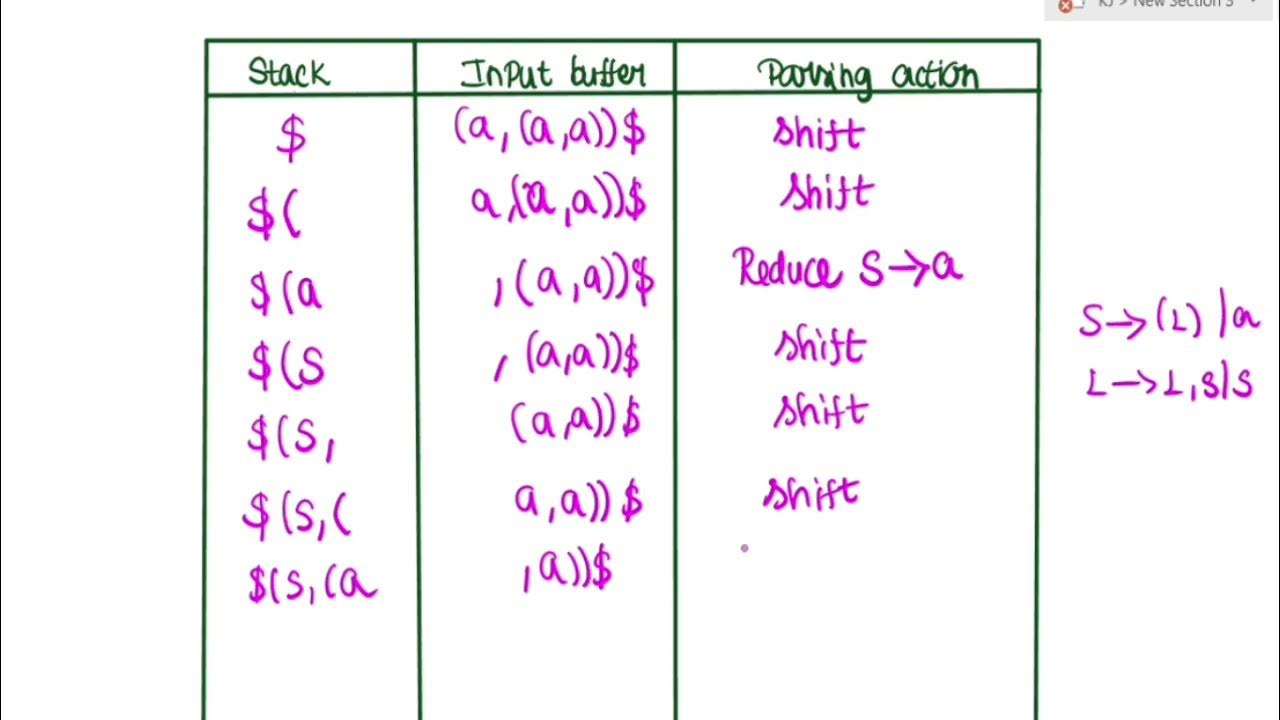 KJ > New Section 3
Stack Input buffer Parsing action
$ (a, (a,a))$ shift
$( a,(a,a))$ shift
$(a ,(a,a))$ Reduce S→a
$(S ,(a,a))$ shift
$(S, (a,a))$ shift
$(S,( a,a))$ shift
$(S,(a ,a))$
S→(L) |a
L→L,S|S